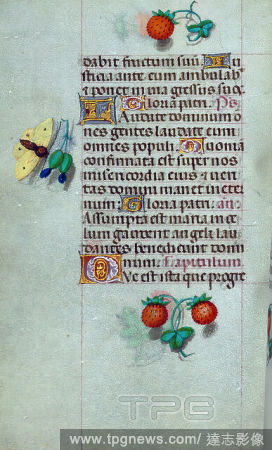 dabit fructum suū. Iu
sticia ante eum ambulab
it ponet in via gressus suos.
Gloria patri. Ps
Laudate dominum o
nes gentes laudate eum
omnes populi. Quoniā
confirmata est super nos
misericordia eius et veri
tas domini manet in eter
num. Gloria patri. an.
Assumpta est maria in ce
lum gaudent angeli lau
dantes benedicunt dom
inum. Capitulum.
Que est ista que progre
TPG
www.tpgnews.com/達志影像